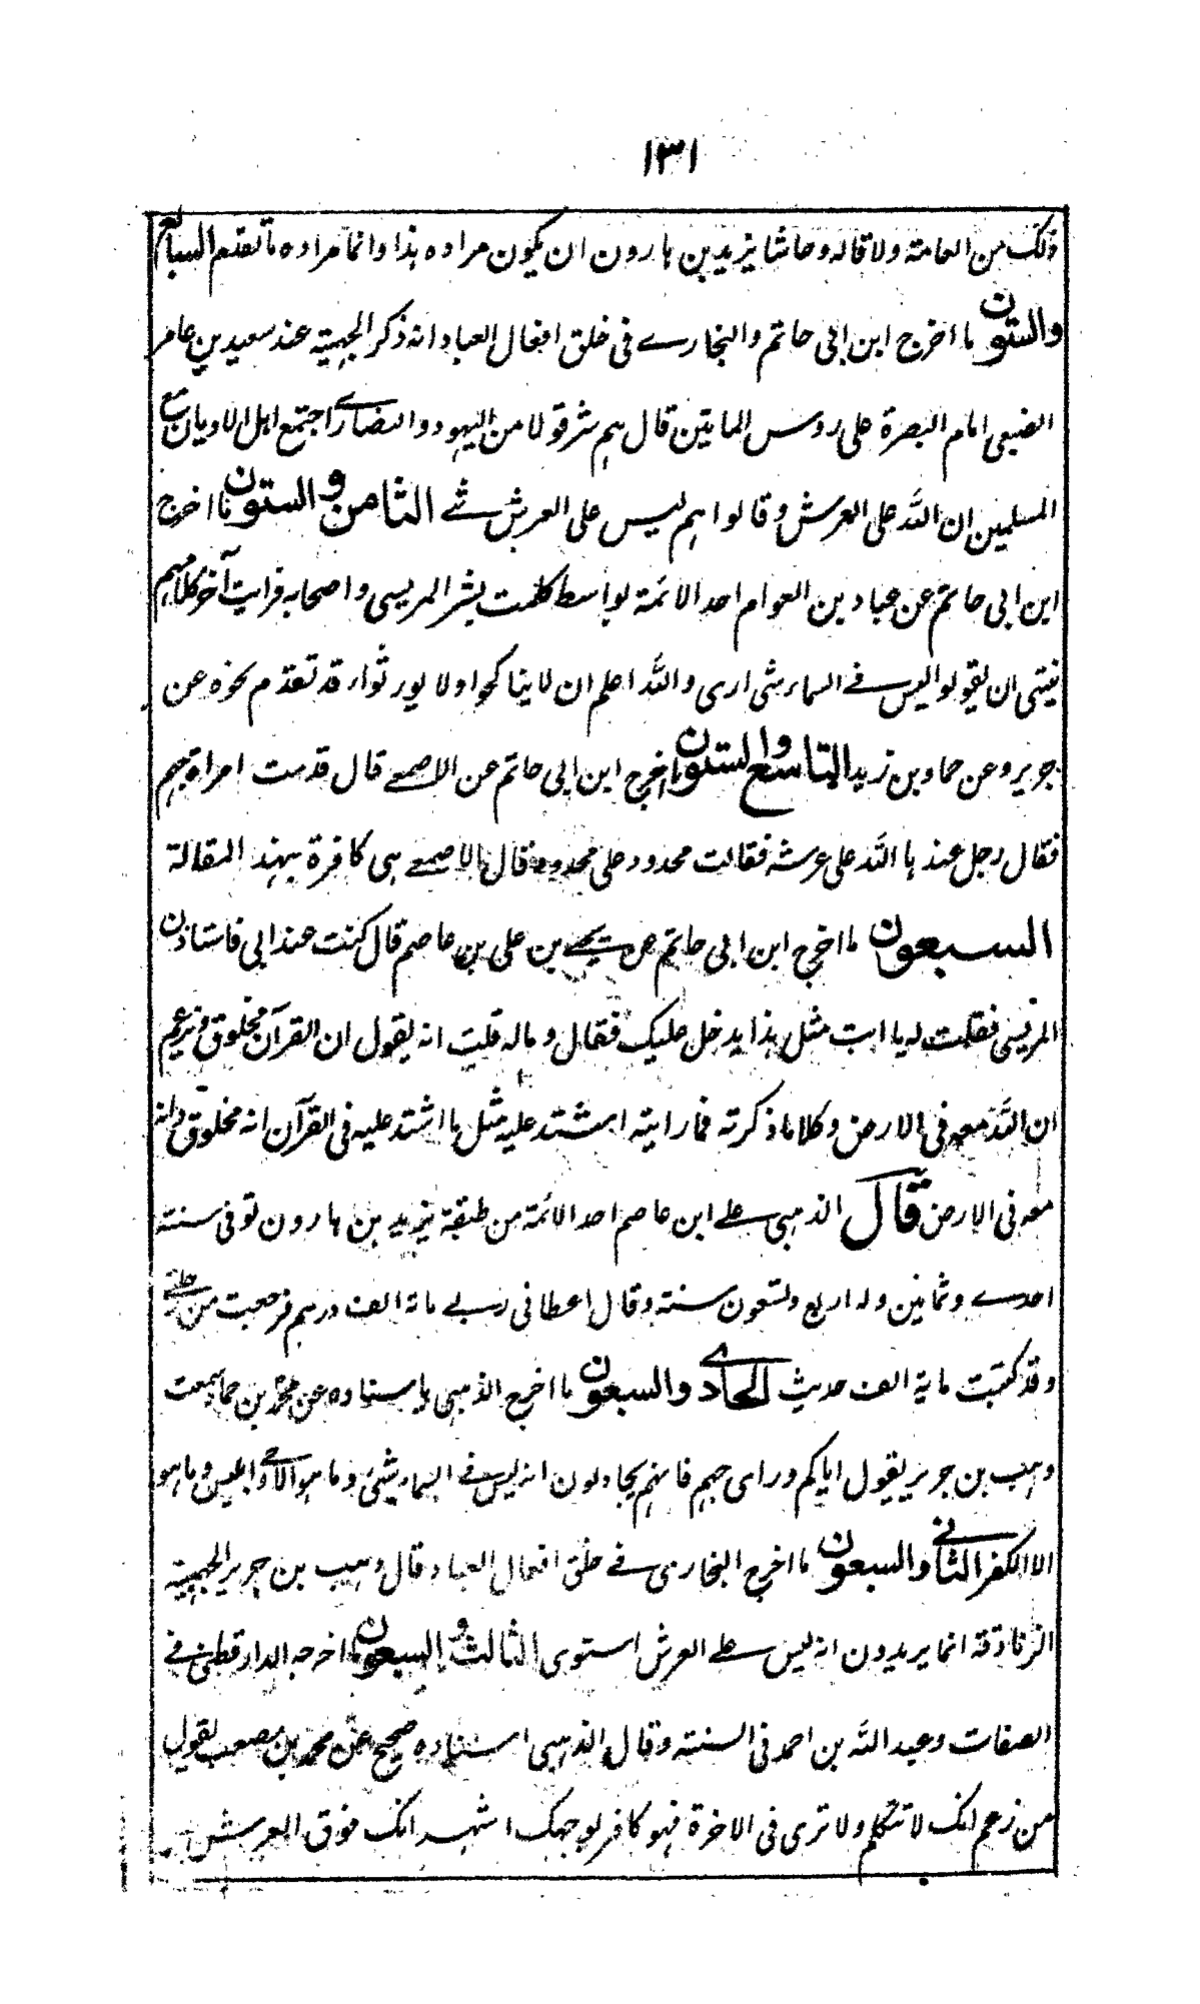 ١٣١
ذلك من العامة ولا قاله وحاشا يزيد بن هارون ان يكون مراده هذا وانما مراده ما تقدم السابع
والستون ما اخرج ابن ابى حاتم والبخارے فى خلق افعال العباد انه ذكر الجهمية عند سعيد بن عامر
الضبعى امام البصرة على روس المايتين قال هم شر قولا من اليهود والنصارے اجتمع اهل الاديان مع
المسلمين ان الله على العرش وقالوا هم ليس على العرش شے الثامن والستون ما اخرج
ابن ابى حاتم عن عباد بن العوام احد الائمة بواسط كلمت بشر المريسى واصحابه فرايت آخر كلامهم
ينتى ان يقولوا ليس فے السماء شى ارى والله اعلم ان لا يناكحوا ولا يورثوا، قد تقدم نحوه عن
جرير وعن حماد بن زيد التاسع والستون ما اخرج ابن ابى حاتم عن الاصمعے قال قدمت امراة جهم
فقال رجل عندها الله على عرشه فقالت محدود على محدود قال الاصمعے هى كافرة بهذه المقالة
السبعون ما اخرج ابن ابى حاتم عن يحيے بن على بن عاصم قال كنت عند ابى فاستاذن
المريسى فقلت له يا ابت مثل هذا يدخل عليك فقال وما له قلت انه يقول ان القرآن مخلوق ويزعم
ان الله معه فى الارض وكلاما ذكرته فما رايته اشتد عليه مثل ما اشتد عليه فى القرآن انه مخلوق وانه
معه فى الارض قال الذهبى علے ابن عاصم احد الائمة من طبقة يزيد بن هارون توفى سنة
احدے وثمانين وله اربع وتسعون سنة وقال اعطانى ابے مائة الف درهم فرجعت من
وقد كتبت ماية الف حديث الحادے والسبعون ما اخرج الذهبى باسناده عن محمد بن حماد سمعت
وهب بن جرير يقول اياكم وراى جهم فانهم يحاولون انه ليس فے السماء شئ وما هو الا وحے ابليس وما هو
الا الكفر الثانے والسبعون ما اخرج البخارى فے خلق افعال العباد قال وهيب بن جرير الجهمية
الزنادقة انما يريدون انه ليس علے العرش استوى الثالث والسبعون ما اخرجه الدارقطنى فے
الصفات وعبد الله بن احمد فى السنة وقال الذهبى اسناده صحيح عن محمد بن مصعب يقول
من زعم انك لا تتكلم ولا ترى فى الاخرة فهو كافر بوجهك اشهد انك فوق العرش